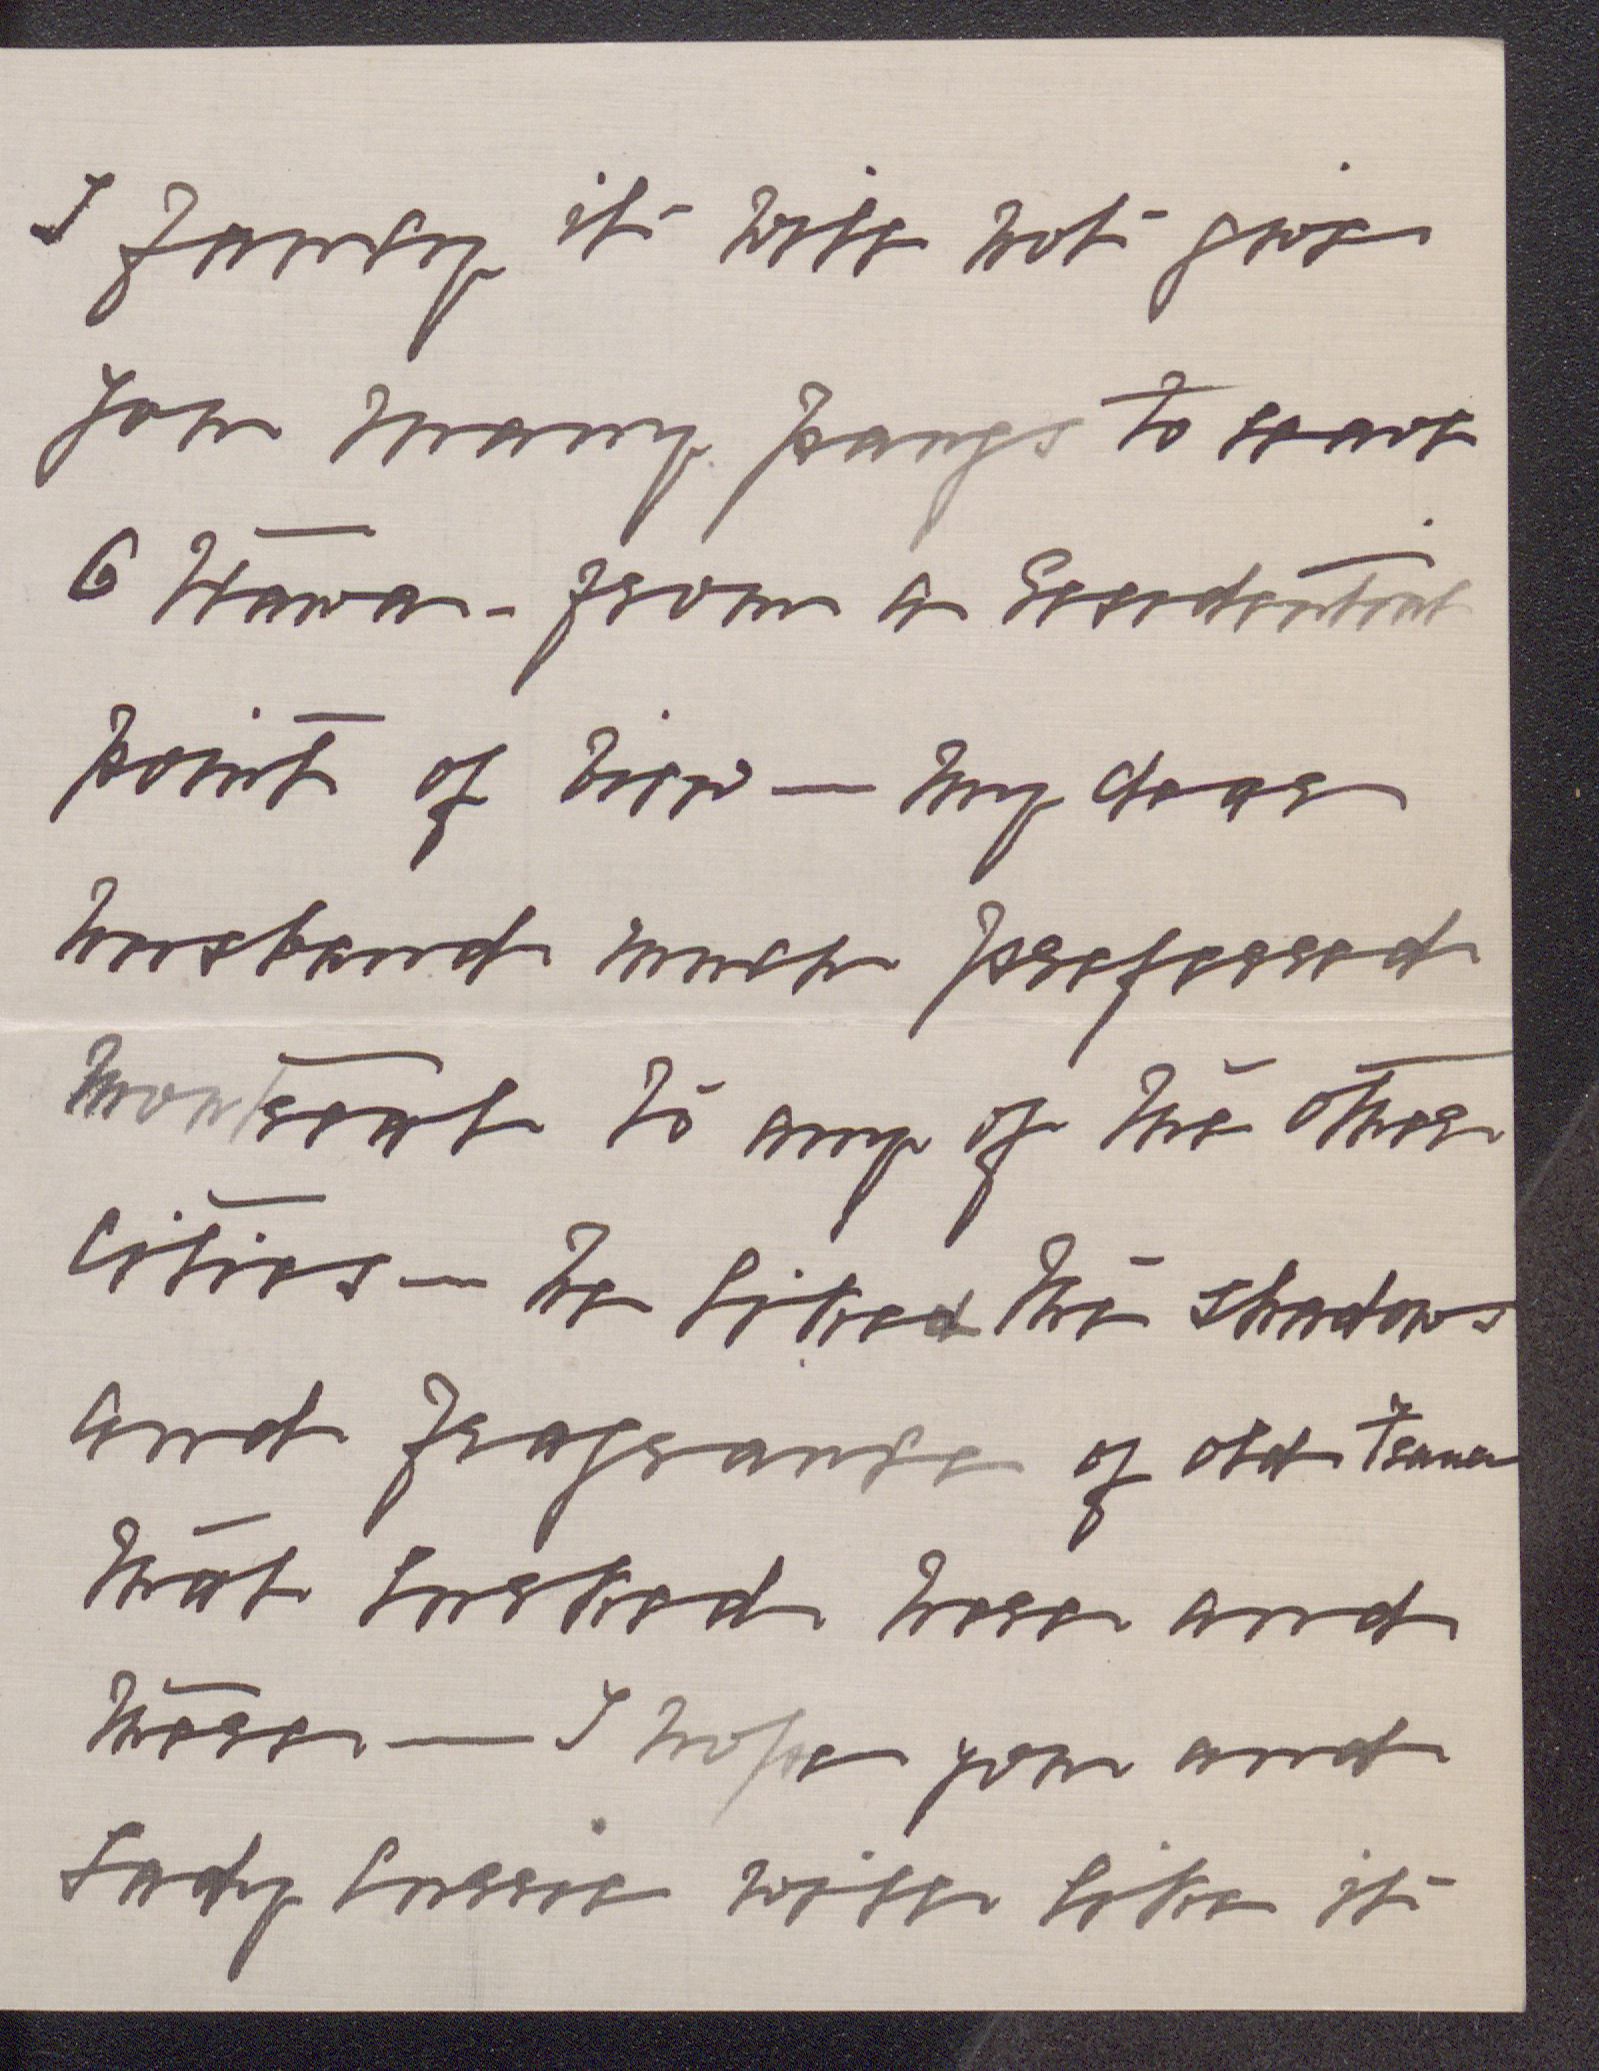 I fancy it will not give
you many pangs to leave
Ottawa - from a residential
point of view — my dear
husband much preferred
Montreal to any of the other
cities — he liked the shadows
and fragrance of old France
that lurked here and
there — I hope you and
Lady Currie will like it